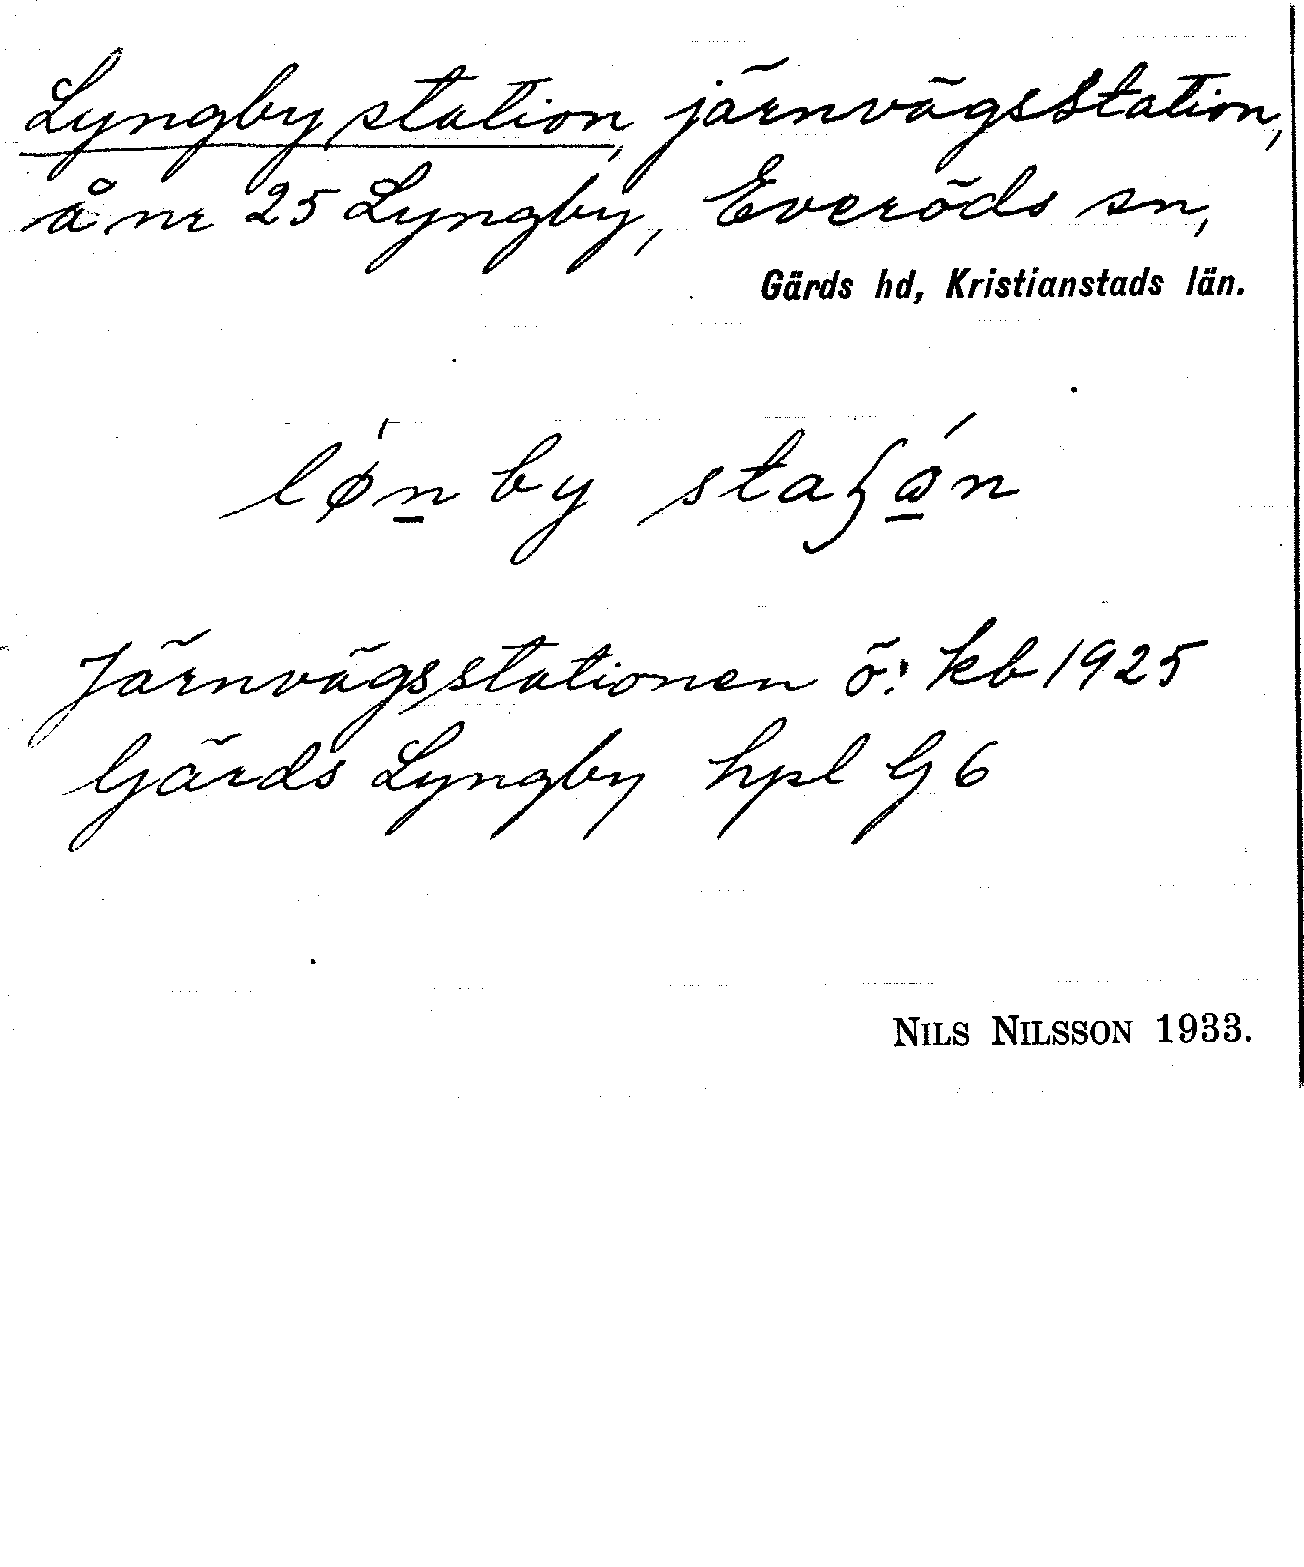 Lyngby station, järnvägsstation,
å nr 25 Lyngby, Everöds sn,
Gärds hd, Kristianstads län.
lǿn̲by staʃó̲n
Järnvägsstationen ö: kb 1925
Gärds Lyngby hpl G 6
NILS NILSSON 1933.